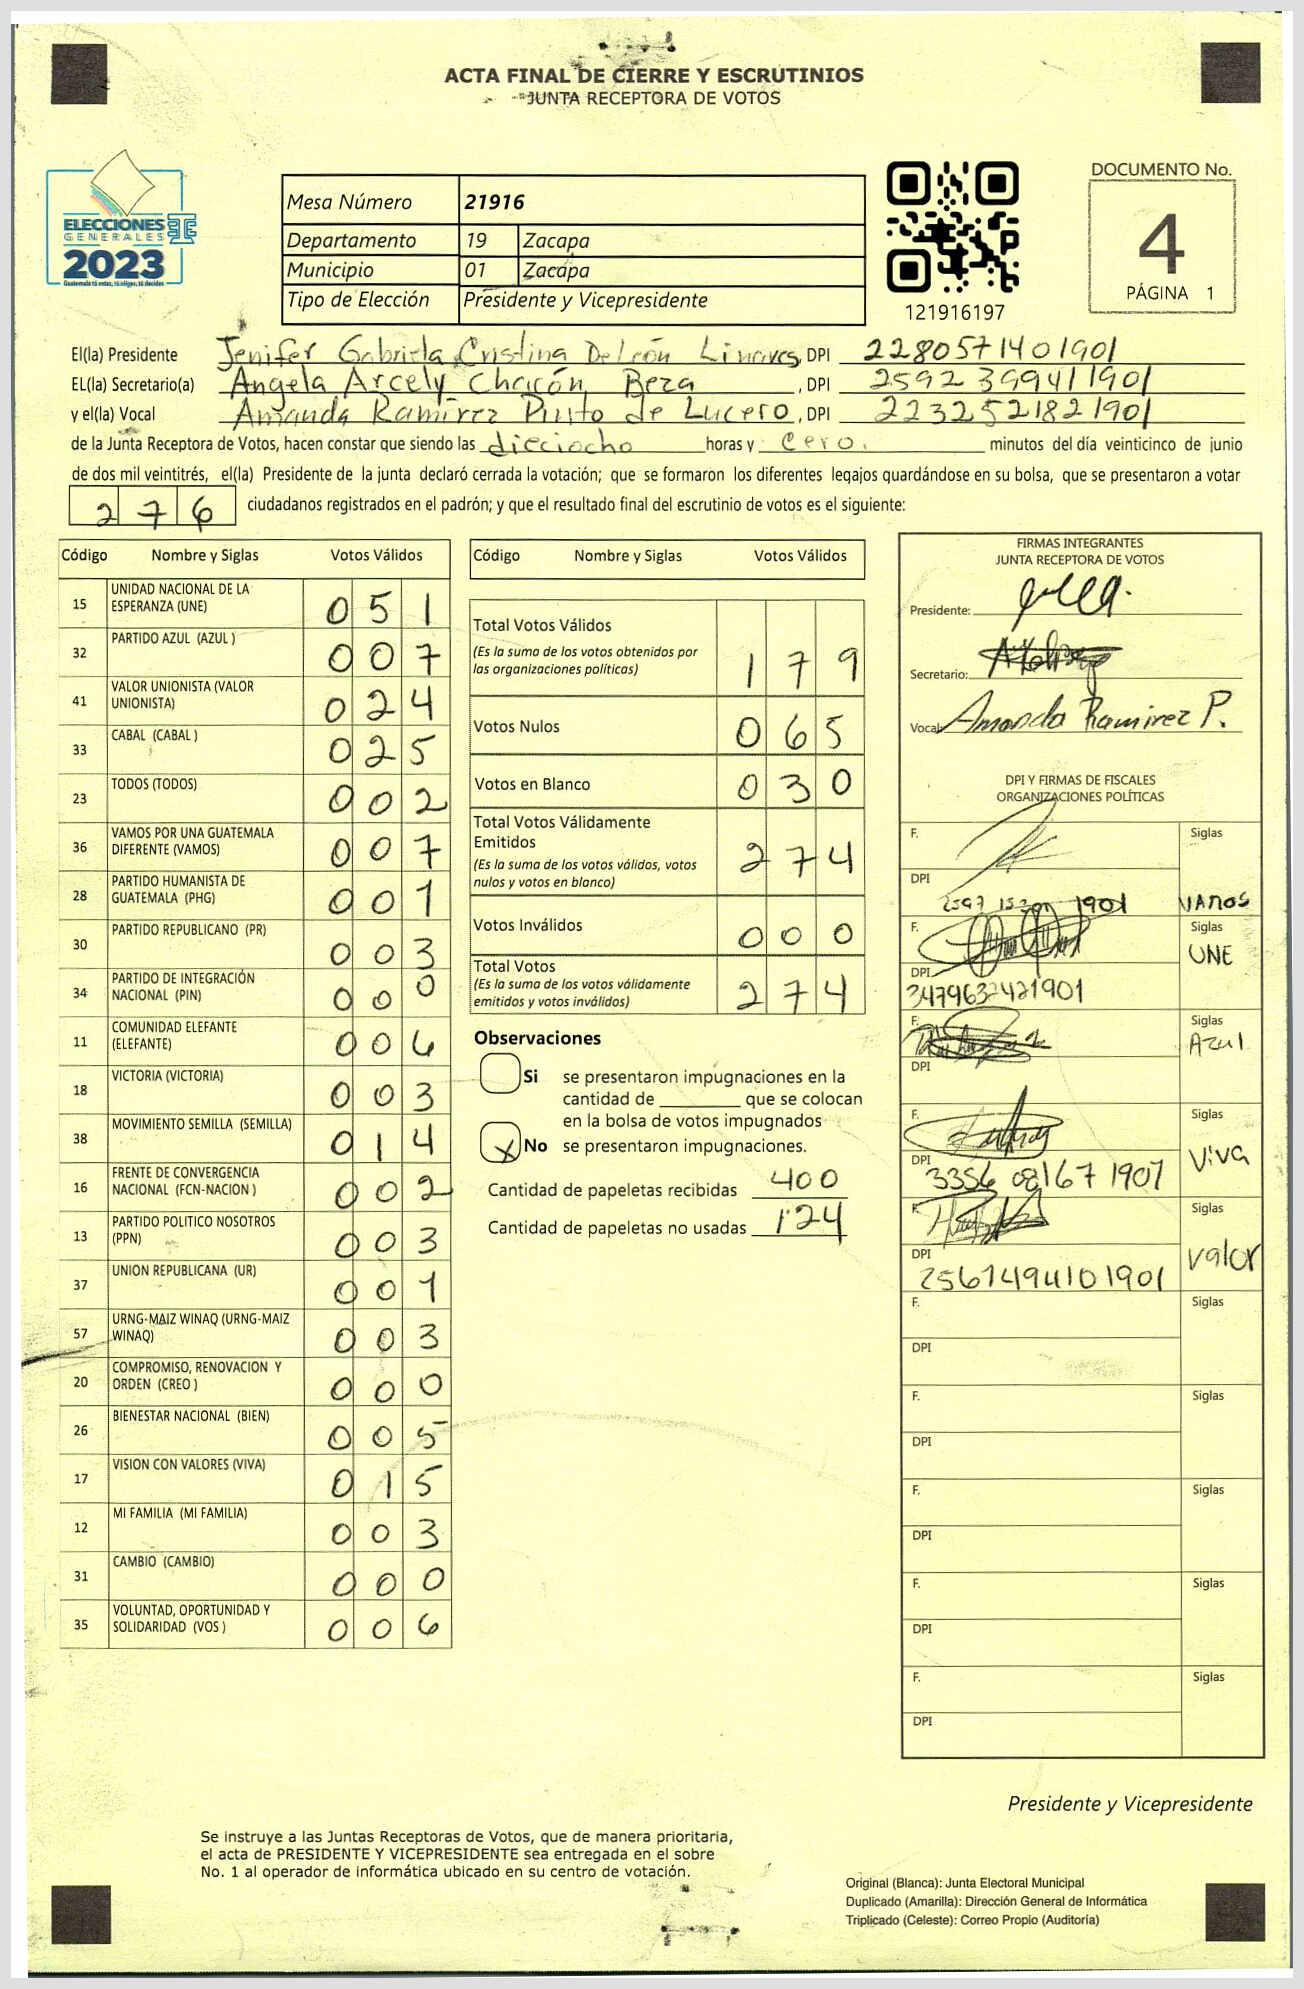 ACTA FINAL DE CIERRE Y ESCRUTINIOS
JUNTA RECEPTORA DE VOTOS
ELECCIONES
GENERALES
2023
Guatemala tú votas, tú eliges, tú decides
Mesa Número 21916
Departamento 19 Zacapa
Municipio 01 Zacapa
Tipo de Elección Presidente y Vicepresidente
121916197
DOCUMENTO No.
4
PÁGINA 1
El(la) Presidente Jenifer Gabriela Cristina DeLeón Linares, DPI 2280571401901
EL(la) Secretario(a) Angela Arcely Chacón Beza, DPI 2592399411901
y el(la) Vocal Amanda Ramirez Pinto de Lucero, DPI 2232521821901
de la Junta Receptora de Votos, hacen constar que siendo las dieciocho horas y cero. minutos del día veinticinco de junio
de dos mil veintitrés, el(la) Presidente de la junta declaró cerrada la votación; que se formaron los diferentes legajos guardándose en su bolsa, que se presentaron a votar
276 ciudadanos registrados en el padrón; y que el resultado final del escrutinio de votos es el siguiente:
Código Nombre y Siglas Votos Válidos
15 UNIDAD NACIONAL DE LA ESPERANZA (UNE) 051
32 PARTIDO AZUL (AZUL ) 007
41 VALOR UNIONISTA (VALOR UNIONISTA) 024
33 CABAL (CABAL ) 025
23 TODOS (TODOS) 002
36 VAMOS POR UNA GUATEMALA DIFERENTE (VAMOS) 007
28 PARTIDO HUMANISTA DE GUATEMALA (PHG) 001
30 PARTIDO REPUBLICANO (PR) 003
34 PARTIDO DE INTEGRACIÓN NACIONAL (PIN) 000
11 COMUNIDAD ELEFANTE (ELEFANTE) 006
18 VICTORIA (VICTORIA) 003
38 MOVIMIENTO SEMILLA (SEMILLA) 014
16 FRENTE DE CONVERGENCIA NACIONAL (FCN-NACION ) 002
13 PARTIDO POLITICO NOSOTROS (PPN) 003
37 UNION REPUBLICANA (UR) 001
57 URNG-MAIZ WINAQ (URNG-MAIZ WINAQ) 003
20 COMPROMISO, RENOVACION Y ORDEN (CREO ) 000
26 BIENESTAR NACIONAL (BIEN) 005
17 VISION CON VALORES (VIVA) 015
12 MI FAMILIA (MI FAMILIA) 003
31 CAMBIO (CAMBIO) 000
35 VOLUNTAD, OPORTUNIDAD Y SOLIDARIDAD (VOS ) 006
Código Nombre y Siglas Votos Válidos
Total Votos Válidos
(Es la suma de los votos obtenidos por
las organizaciones políticas) 179
Votos Nulos 065
Votos en Blanco 030
Total Votos Válidamente
Emitidos
(Es la suma de los votos válidos, votos
nulos y votos en blanco) 274
Votos Inválidos 000
Total Votos
(Es la suma de los votos válidamente
emitidos y votos inválidos) 274
Observaciones
Si se presentaron impugnaciones en la
cantidad de ________ que se colocan
en la bolsa de votos impugnados
X No se presentaron impugnaciones.
Cantidad de papeletas recibidas 400
Cantidad de papeletas no usadas 124
FIRMAS INTEGRANTES
JUNTA RECEPTORA DE VOTOS
Presidente:
Secretario:
Vocal: Amanda Ramirez P.
DPI Y FIRMAS DE FISCALES
ORGANIZACIONES POLÍTICAS
F. Siglas
DPI 1901 VAMOS
F. Siglas
UNE
DPI
3479632421901
F. Siglas
Azul
DPI
F. Siglas
DPI Viva
3356 08167 1907
F. Siglas
DPI valor
2561494101901
F. Siglas
DPI
F. Siglas
DPI
F. Siglas
DPI
F. Siglas
DPI
F. Siglas
DPI
Presidente y Vicepresidente
Se instruye a las Juntas Receptoras de Votos, que de manera prioritaria,
el acta de PRESIDENTE Y VICEPRESIDENTE sea entregada en el sobre
No. 1 al operador de informática ubicado en su centro de votación.
Original (Blanca): Junta Electoral Municipal
Duplicado (Amarilla): Dirección General de Informática
Triplicado (Celeste): Correo Propio (Auditoría)